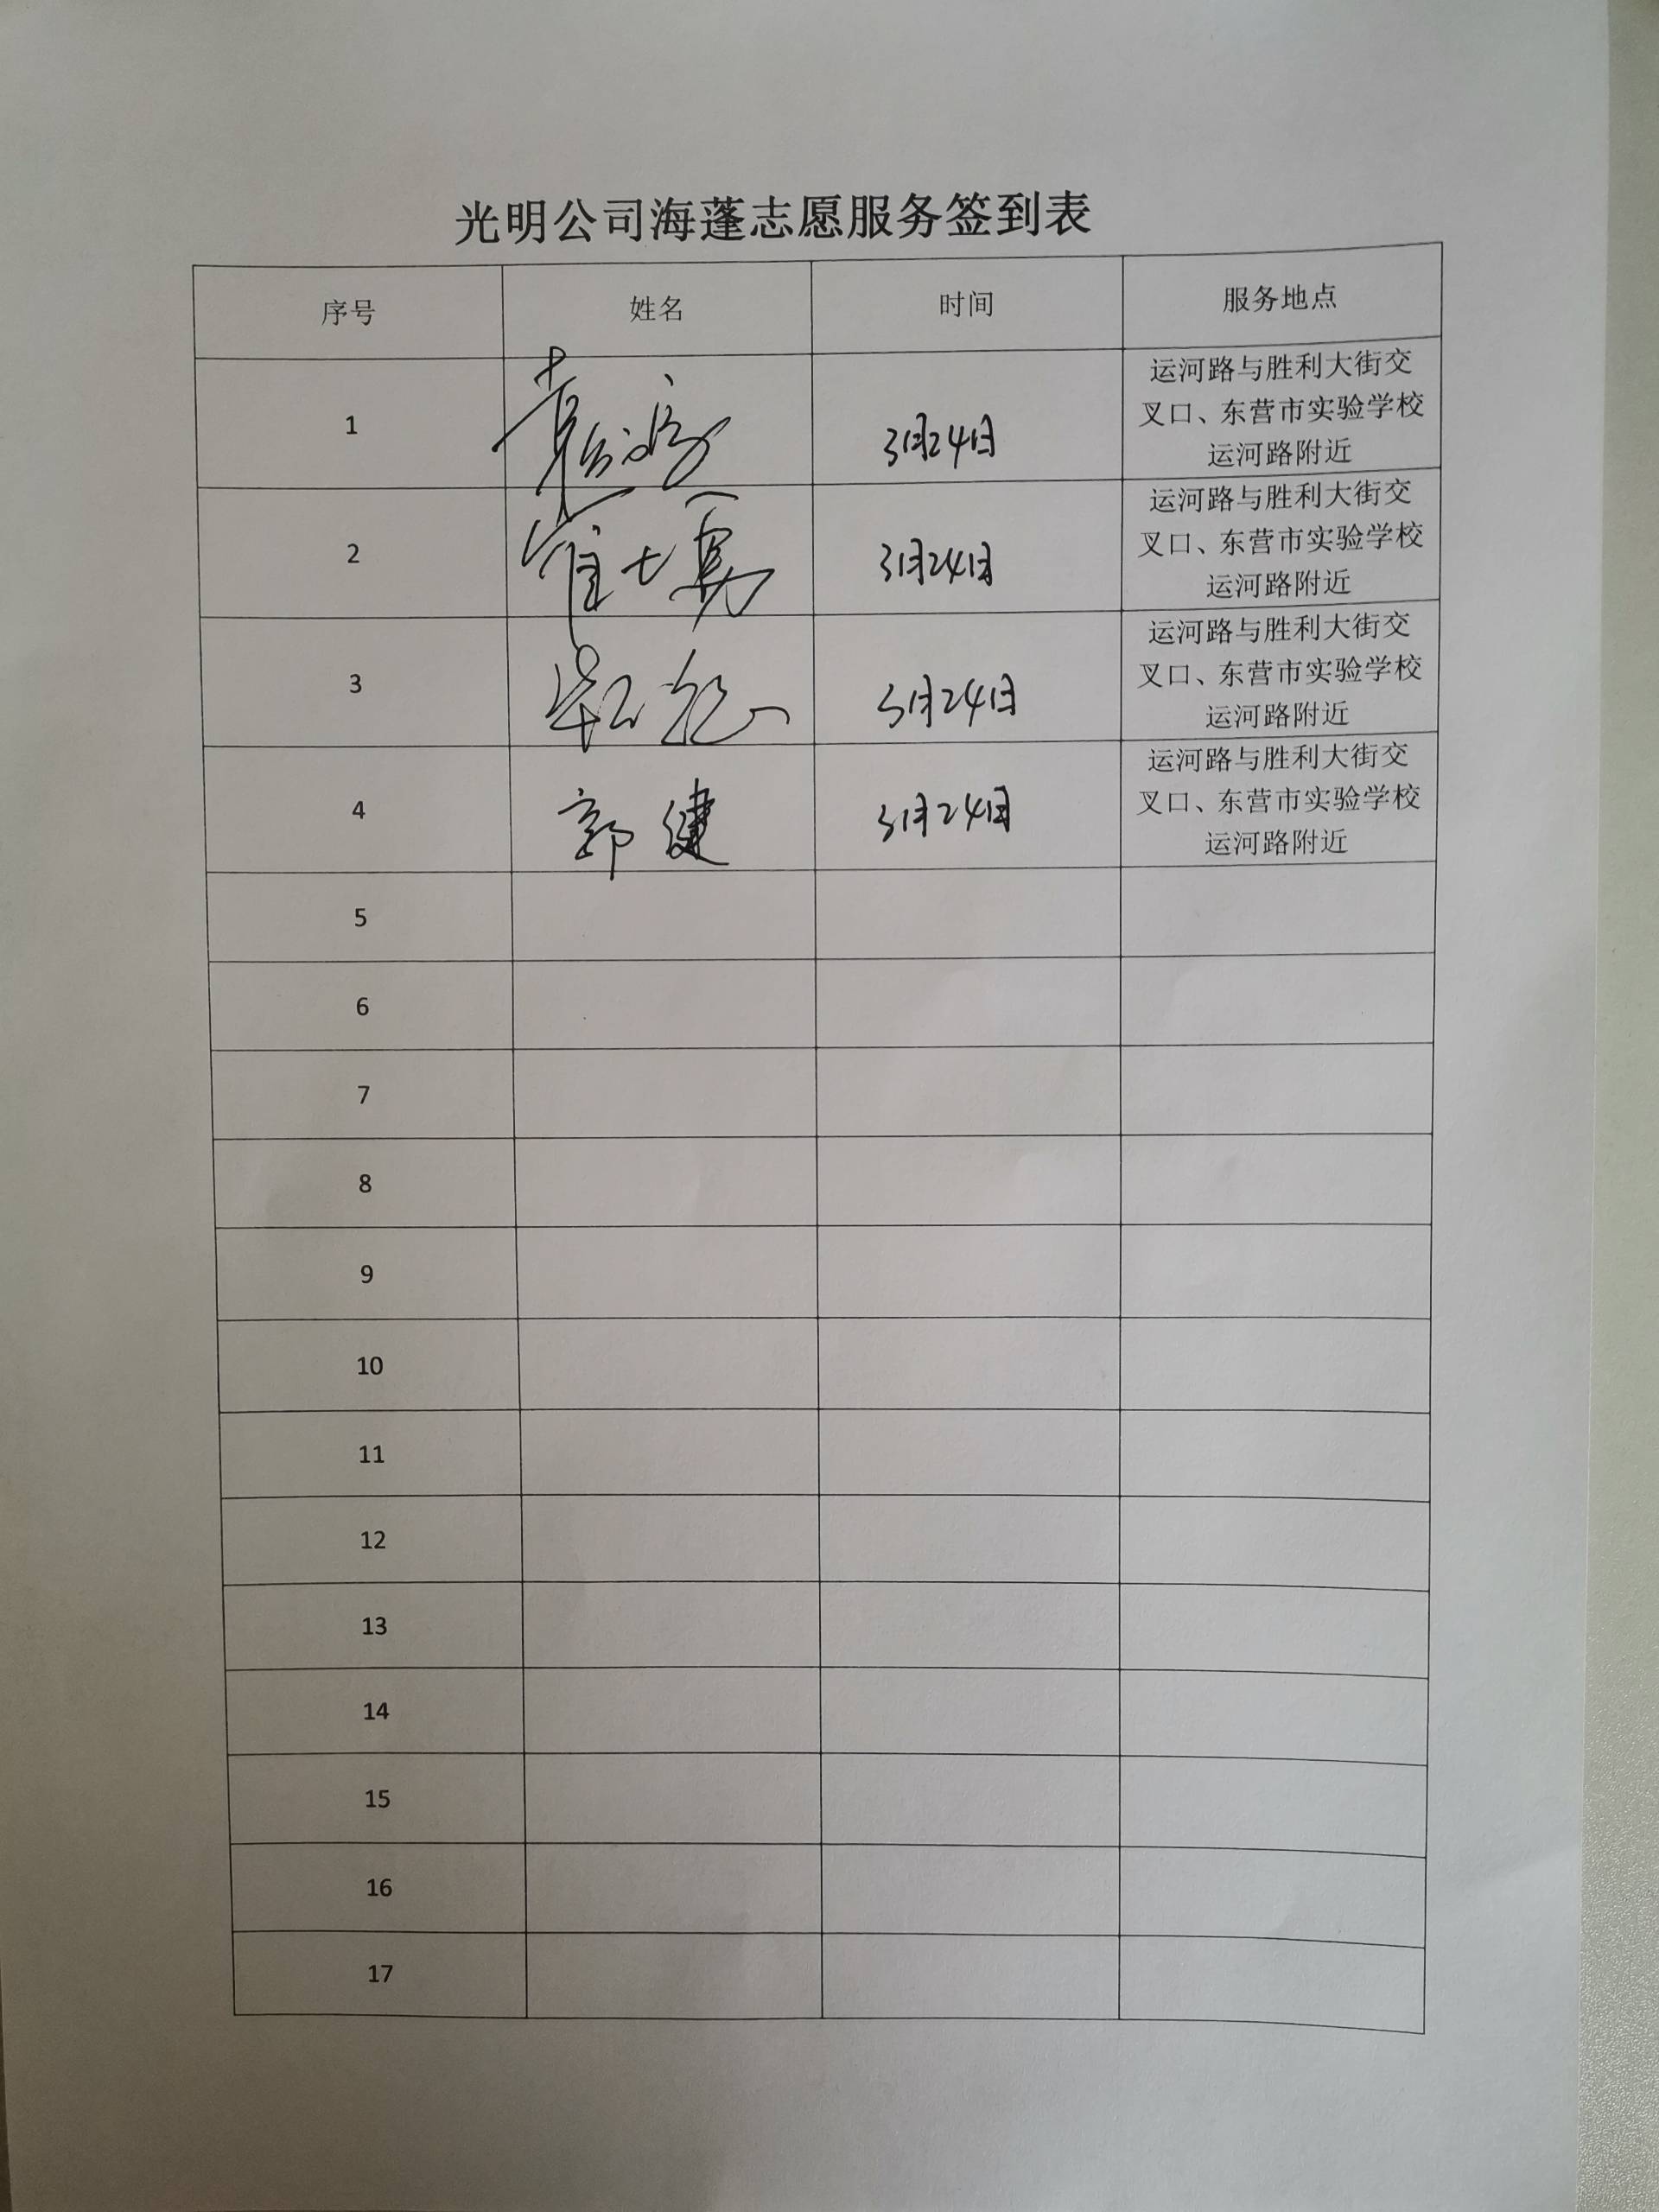 光明公司海蓬志愿服务签到表
序号 姓名 时间 服务地点
1 3月24日 运河路与胜利大街交
叉口、东营市实验学校
运河路附近
2 3月24日 运河路与胜利大街交
叉口、东营市实验学校
运河路附近
3 3月24日 运河路与胜利大街交
叉口、东营市实验学校
运河路附近
4 郭健 3月24日 运河路与胜利大街交
叉口、东营市实验学校
运河路附近
5
6
7
8
9
10
11
12
13
14
15
16
17